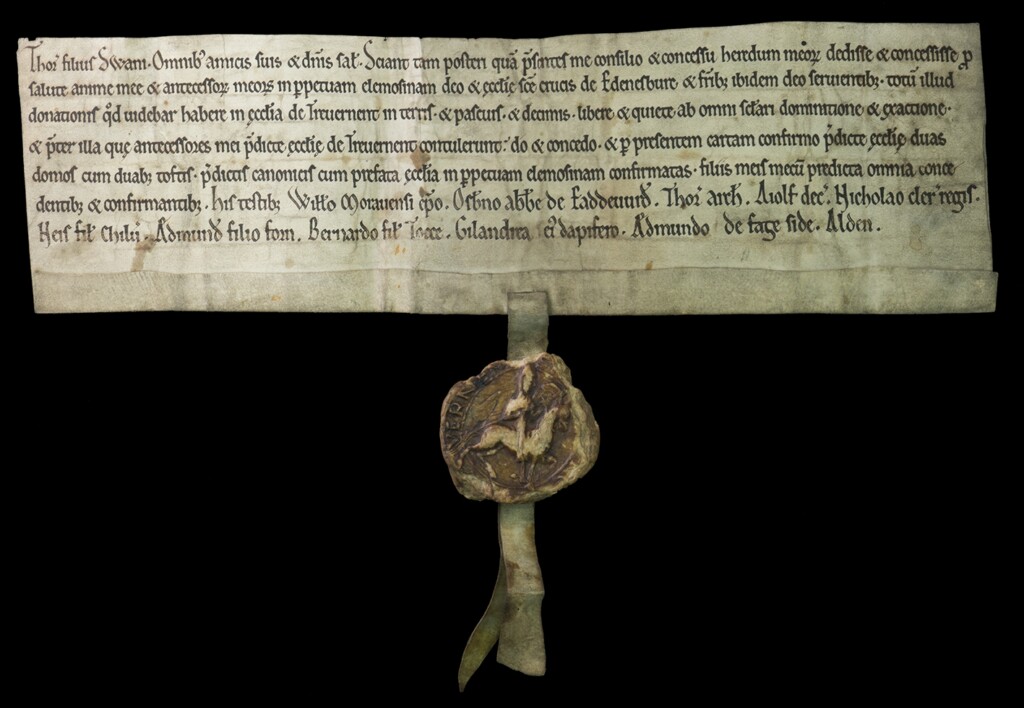 Thoꝛ filius Swain. Omnibꝰ amicis suis ⁊ dn̄is sal̄. Sciant tam posteri quā p̄sentes me consilio ⁊ concessu heredum meoꝝ dedisse ⁊ concessisse ꝓ
salute anime mee ⁊ antecessoꝝ meoꝝ in ꝑpetuam elemosinam deo ⁊ ęcclię sc̄e crucis de Edenesburc ⁊ frībꝫ ibidem deo seruientibꝫ. totū illud
donationis qd̄ uidebar habere in ęcclīa de Treuernent in terris. ⁊ pascuis. ⁊ decimis. libere ⁊ quiete. ab omni sc̄lari dominatione ⁊ exactione.
⁊ p̄ter illa quę antecessores mei p̄dicte ęcclię de Treuernent contulerunt. do ⁊ concedo. ⁊ ꝑ presentem cartam confirmo p̄dicte ęcclię duas
domos cum duabꝫ toftis. p̄dictis canonicis cum prefata ęcclīa in ꝑpetuam elemosinam confirmatas. filiis meis mecū predicta omnia conce
dentibꝫ ⁊ confirmantibꝫ. his testibꝫ Willo Moraviensi ep̄o. Osbno abbe de Eaddewurð. Thoꝛ arch. Aiolf dec̄. Nicholao cler̄ regis.
Neis fil̄ Chilii. Admund filio forn. Bernardo fil̄ Tocce. Gilandrea dapifero. Admundo de fage side. Alden.
VERN